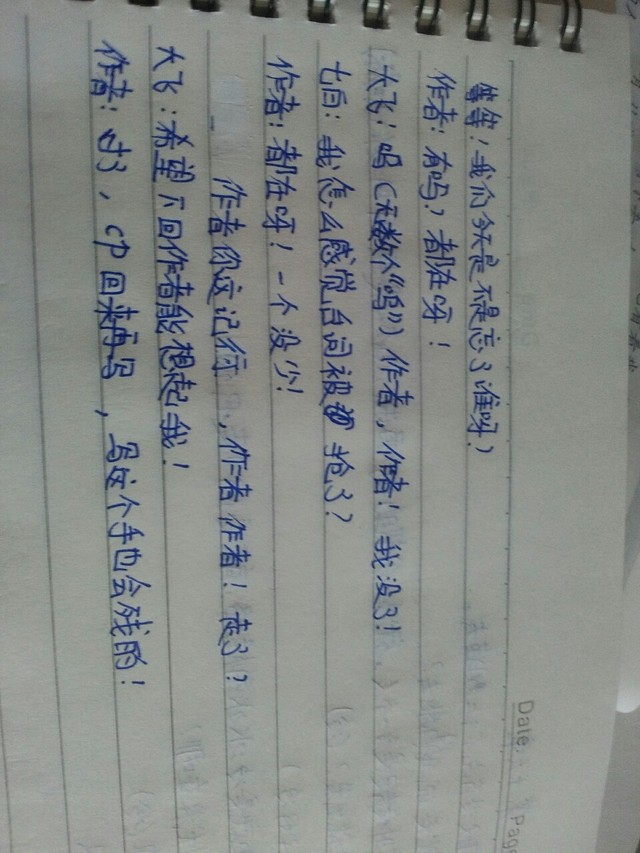 Date.
Page
等等！我们今天是不是忘了谁呀？
作者：有吗？都在呀！
大飞：呜（无数个“呜”）作者，作者！我没了！
七白：我怎么感觉台词被抢了？
作者：都在呀！一个没少！
作者你这记行，作者作者！走了？
大飞：希望下回作者能想起我！
作者：对了，cp回来再写，写这个手也会残的！